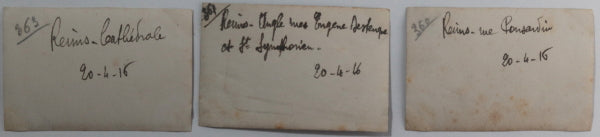 363
Reims - Cathédrale
20-4-16
Reims - Angle rues Eugene Desteuque
et St Symphorien -
20-4-16
360
Reims - rue Ponsardin
20-4-16